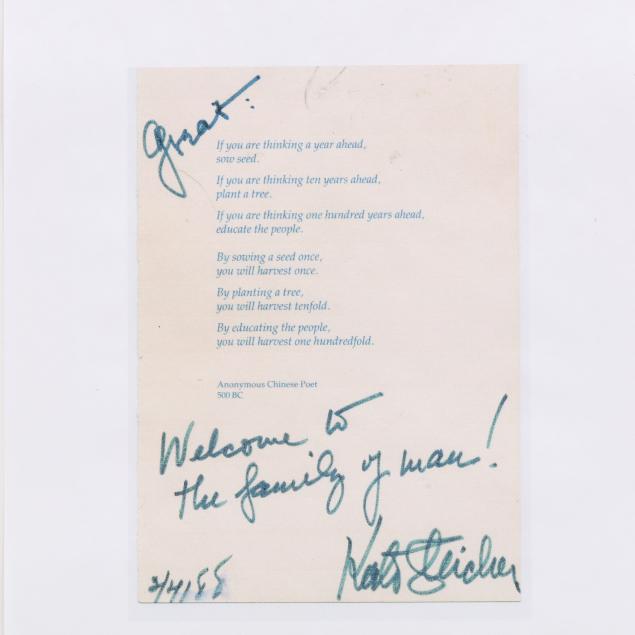 Great:
If you are thinking a year ahead,
sow seed.
If you are thinking ten years ahead,
plant a tree.
If you are thinking one hundred years ahead,
educate the people.
By sowing a seed once,
you will harvest once.
By planting a tree,
you will harvest tenfold.
By educating the people,
you will harvest one hundredfold.
Anonymous Chinese Poet
500 BC
Welcome to
the family of man!